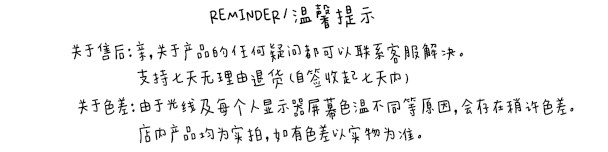 REMINDER/温馨提示
关于售后:亲,关于产品的任何疑问都可以联系客服解决。
支持七天无理由退货(自签收起七天内)
关于色差:由于光线及每个人显示器屏幕色温不同等原因,会存在稍许色差。
店内产品均为实拍,如有色差以实物为准。